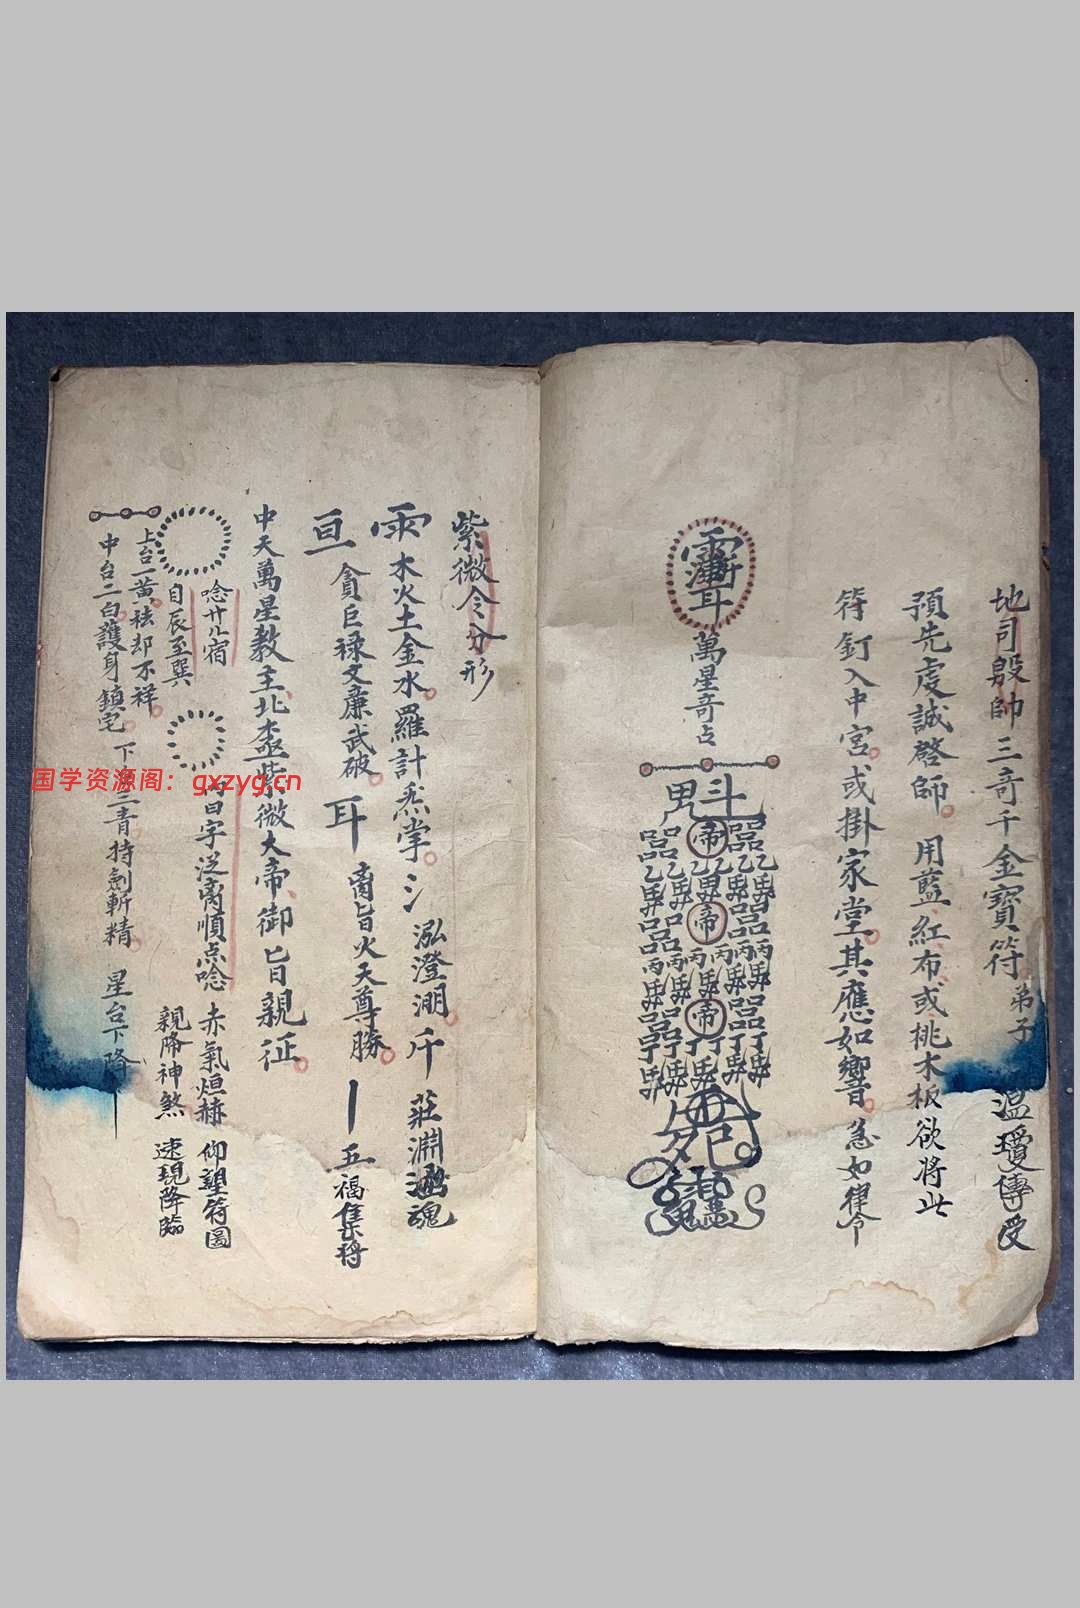 地司殷帥三奇千金寶符 弟子溫瓊傳受
預先虔誠啓師。用藍紅布或桃木板欲將此
符釘入中宮。或掛家堂。其應如響。急如律令
萬星奇占
斗
帝
帝
帝
紫微令分形
木火土金水。羅計炁掌。氵泓澄淵。斤 莊淵 魂
亘 貪巨祿文廉武破。耳 旨火天尊勝。丨五福集將
中天萬星教主北極紫微大帝御旨親征。
唸廿八宿
自辰至巽
日字泛离順点唸 赤氣烜赫 仰望符圖
親降神煞 速現降臨
上台一黃。祛却不祥。
中台二白。護身鎮宅。下台三青。持劍斬精。星台下降
国学资源阁：gxzyg.cn